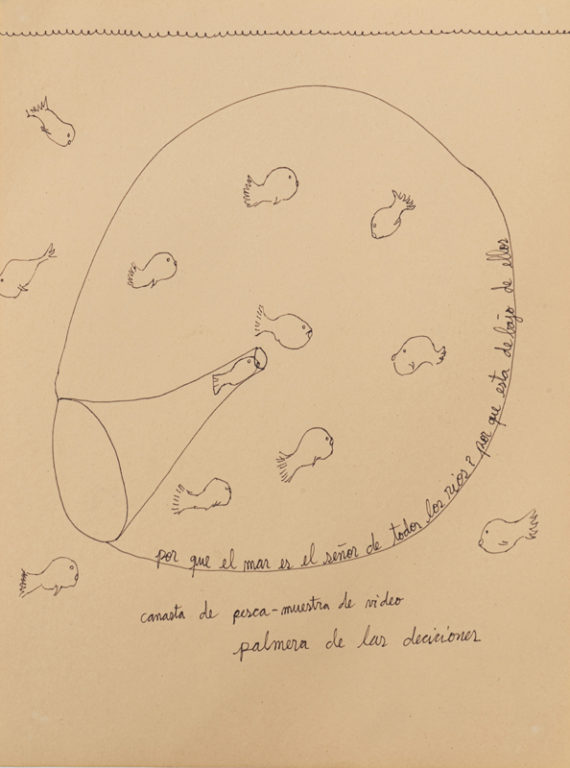 por que el mar es el señor de todos los rios? por que esta de bajo de ellos
canasta de pesca-muestra de video
palmera de las deciciones